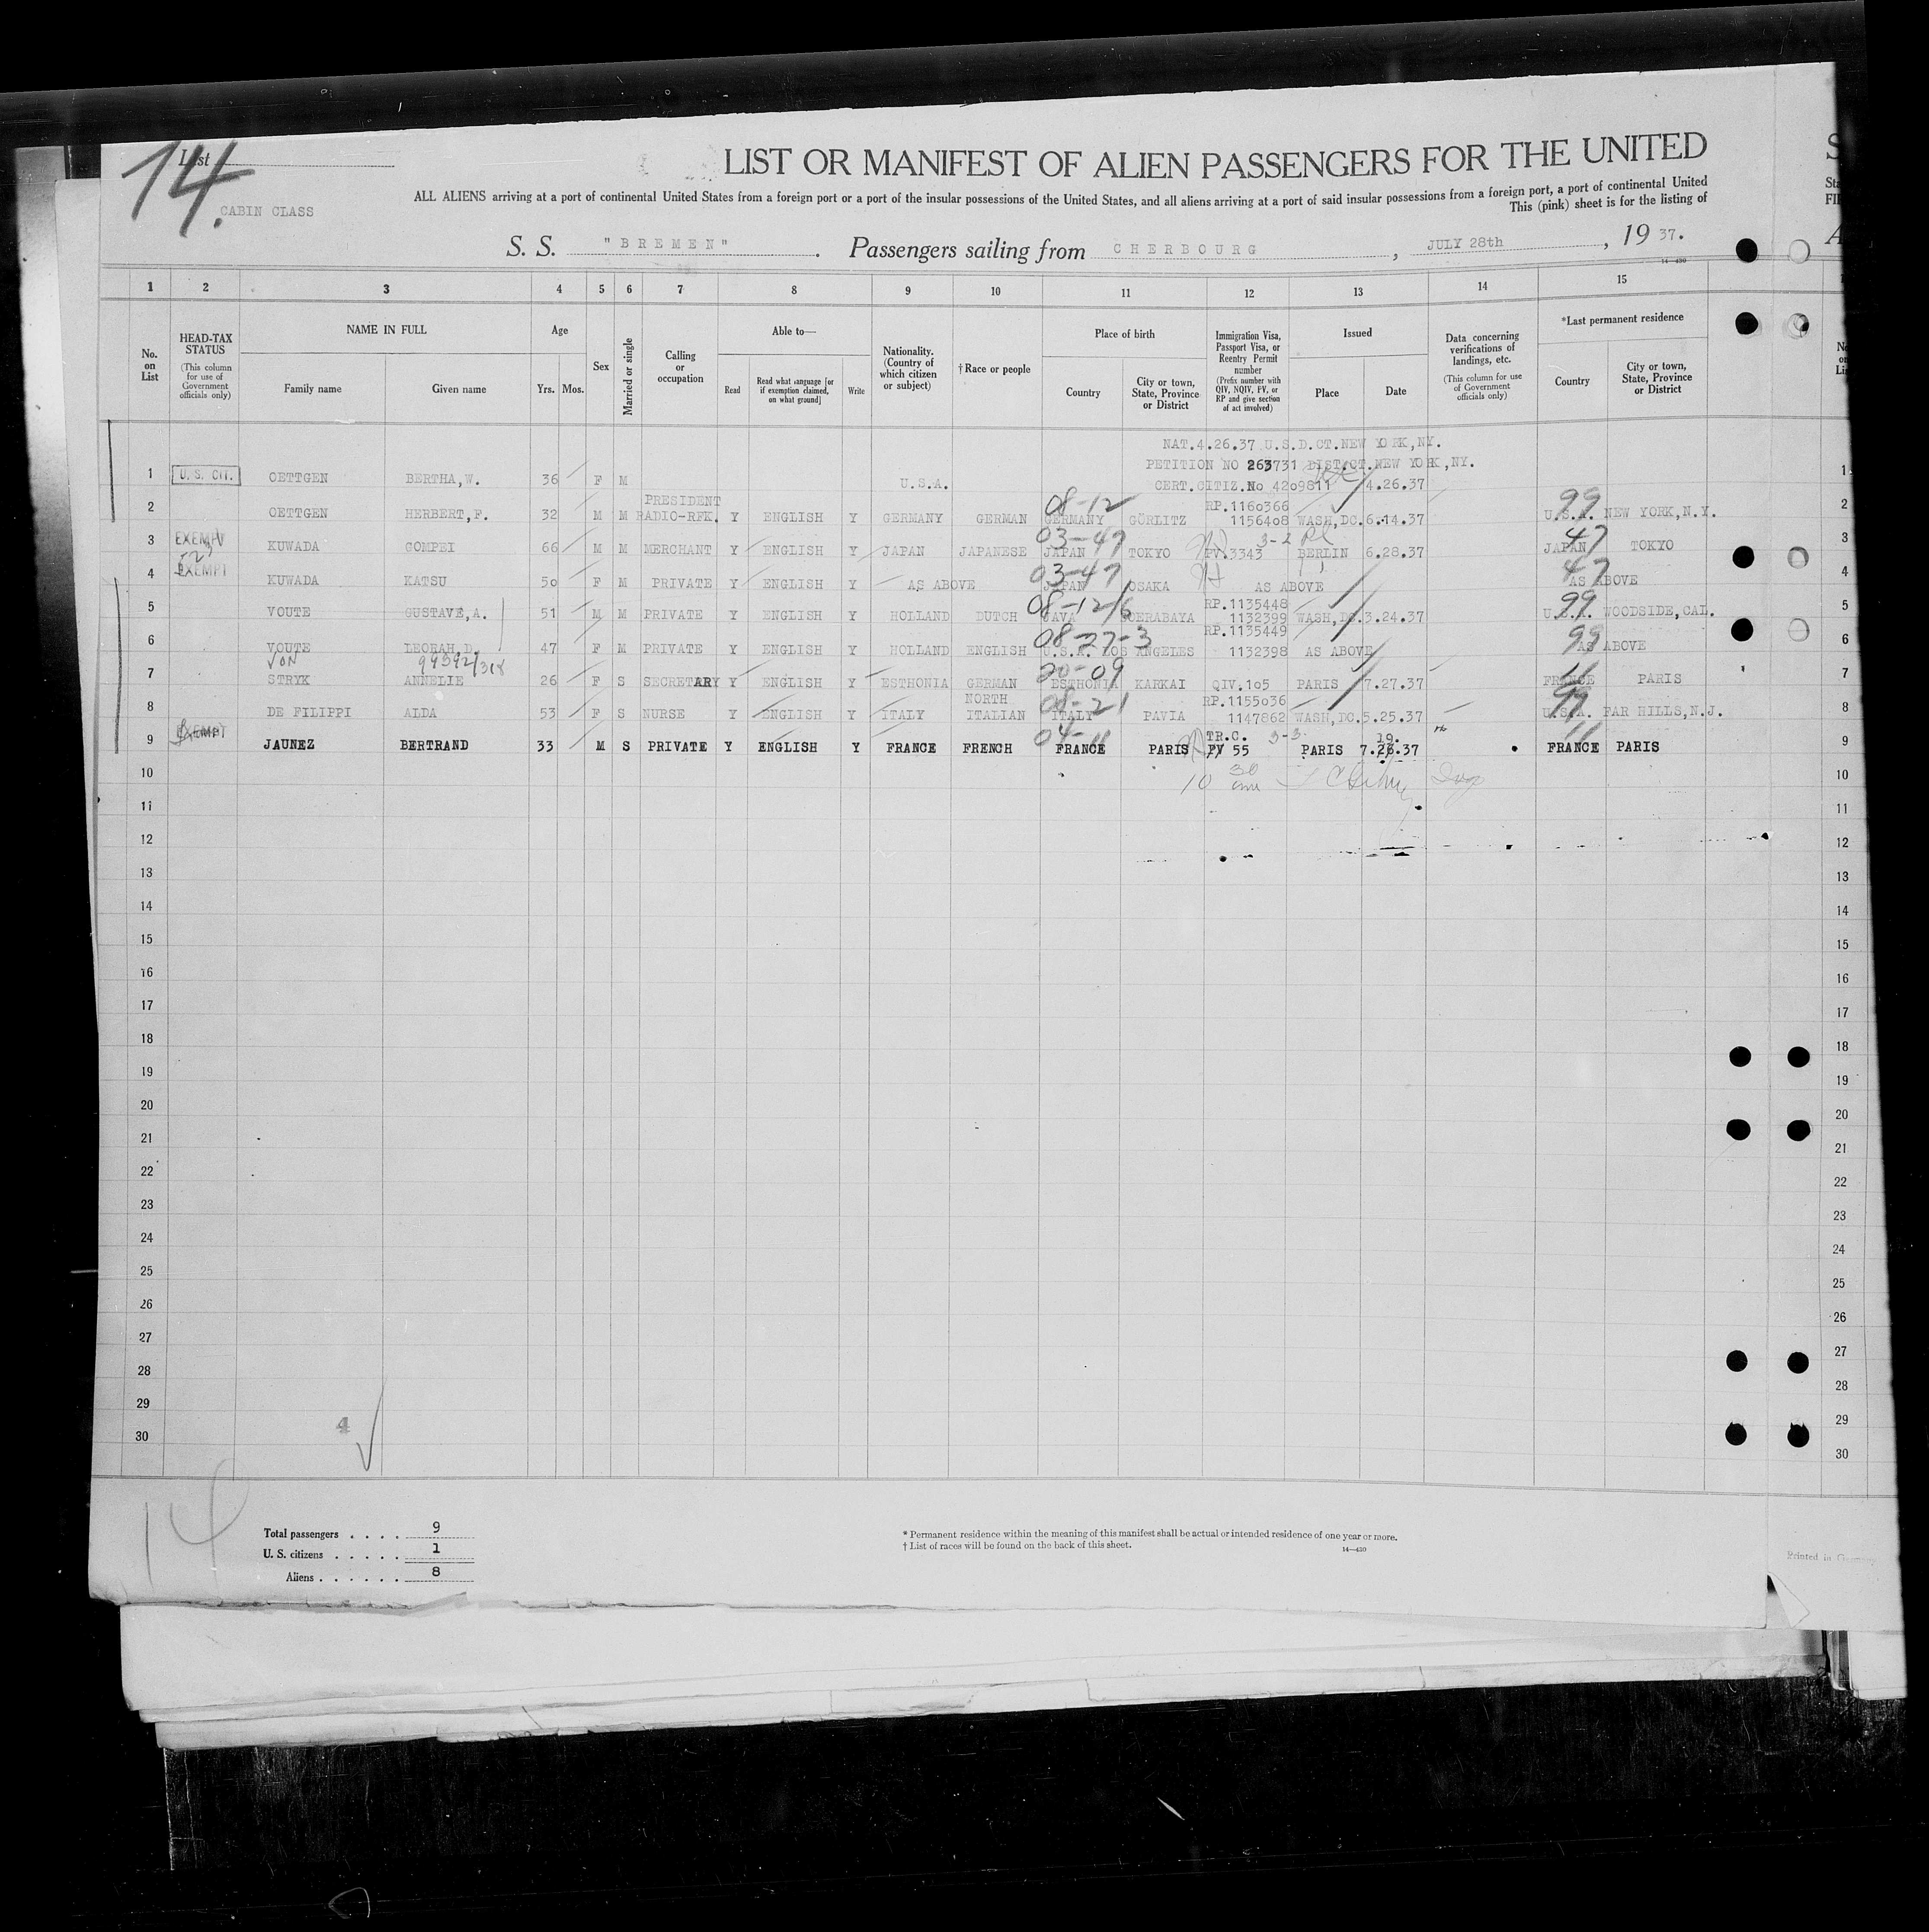 List
14.
LIST OR MANIFEST OF ALIEN PASSENGERS FOR THE UNITED
CABIN CLASS
ALL ALIENS arriving at a port of continental United States from a foreign port or a port of the insular possessions of the United States, and all aliens arriving at a port of said insular possessions from a foreign port, a port of continental United
This (pink) sheet is for the listing of
S. S. "BREMEN". Passengers sailing from CHERBOURG, JULY 28th, 1937.
14—430
1 2 3 4 5 6 7 8 9 10 11 12 13 14 15
No. on List
HEAD-TAX STATUS (This column for use of Government officials only)
NAME IN FULL
Family name
Given name
Age
Yrs. Mos.
Sex
Married or single
Calling or occupation
Able to—
Read
Read what language [or if exemption claimed, on what ground]
Write
Nationality. (Country of which citizen or subject)
†Race or people
Place of birth
Country
City or town, State, Province or District
Immigration Visa, Passport Visa, or Reentry Permit number (Prefix number with QIV, NQIV, PV, or RP and give section of act involved)
Issued
Place
Date
Data concerning verifications of landings, etc. (This column for use of Government officials only)
*Last permanent residence
Country
City or town, State, Province or District
NAT.4.26.37 U.S.D.CT.NEW YORK,NY.
PETITION NO 263731 DIST.CT.NEW YORK,NY.
1 U. S. CIT. OETTGEN BERTHA,W. 36 F M U.S.A. CERT.CITIZ.No 4209811 4.26.37 1
PRESIDENT 08-12 RP.1160366 99
2 OETTGEN HERBERT,F. 32 M M RADIO-RFK. Y ENGLISH Y GERMANY GERMAN GERMANY GÖRLITZ 1156408 WASH,DC.6.14.37 U.S.A. NEW YORK,N.Y. 2
EXEMPT 03-47 3-2 47
3 -23 KUWADA GOMPEI 66 M M MERCHANT Y ENGLISH Y JAPAN JAPANESE JAPAN TOKYO PV.3343 BERLIN 6.28.37 JAPAN TOKYO 3
EXEMPT 03-47 47
4 KUWADA KATSU 50 F M PRIVATE Y ENGLISH Y AS ABOVE JAPAN OSAKA AS ABOVE AS ABOVE 4
08-12/6 RP.1135448 99
5 VOUTE GUSTAVE,A. 51 M M PRIVATE Y ENGLISH Y HOLLAND DUTCH JAVA SOERABAYA 1132399 WASH,DC.3.24.37 U.S.A. WOODSIDE,CAL. 5
08-27-3 RP.1135449 99
6 VOUTE LEORAH,D. 47 F M PRIVATE Y ENGLISH Y HOLLAND ENGLISH U.S.A. LOS ANGELES 1132398 AS ABOVE AS ABOVE 6
VON 99392/318 20-09 11
7 STRYK ANNELIE 26 F S SECRETARY Y ENGLISH Y ESTHONIA GERMAN ESTHONIA KARKAI QIV.105 PARIS 7.27.37 FRANCE PARIS 7
NORTH 08-21 RP.1155036 99
8 DE FILIPPI ALDA 53 F S NURSE Y ENGLISH Y ITALY ITALIAN ITALY PAVIA 1147862 WASH,DC.5.25.37 U.S.A. FAR HILLS,N.J. 8
EXEMPT 04-11 TR.C. 3-3 19. 11
9 JAUNEZ BERTRAND 33 M S PRIVATE Y ENGLISH Y FRANCE FRENCH FRANCE PARIS PV 55 PARIS 7.26.37 FRANCE PARIS 9
10 10 30 10
11 11
12 12
13 13
14 14
15 15
16 16
17 17
18 18
19 19
20 20
21 21
22 22
23 23
24 24
25 25
26 26
27 27
28 28
29 29
4
30 30
14
Total passengers . . . . 9
U. S. citizens . . . . . 1
Aliens . . . . . . 8
* Permanent residence within the meaning of this manifest shall be actual or intended residence of one year or more.
† List of races will be found on the back of this sheet.
14—430
Printed in Germany